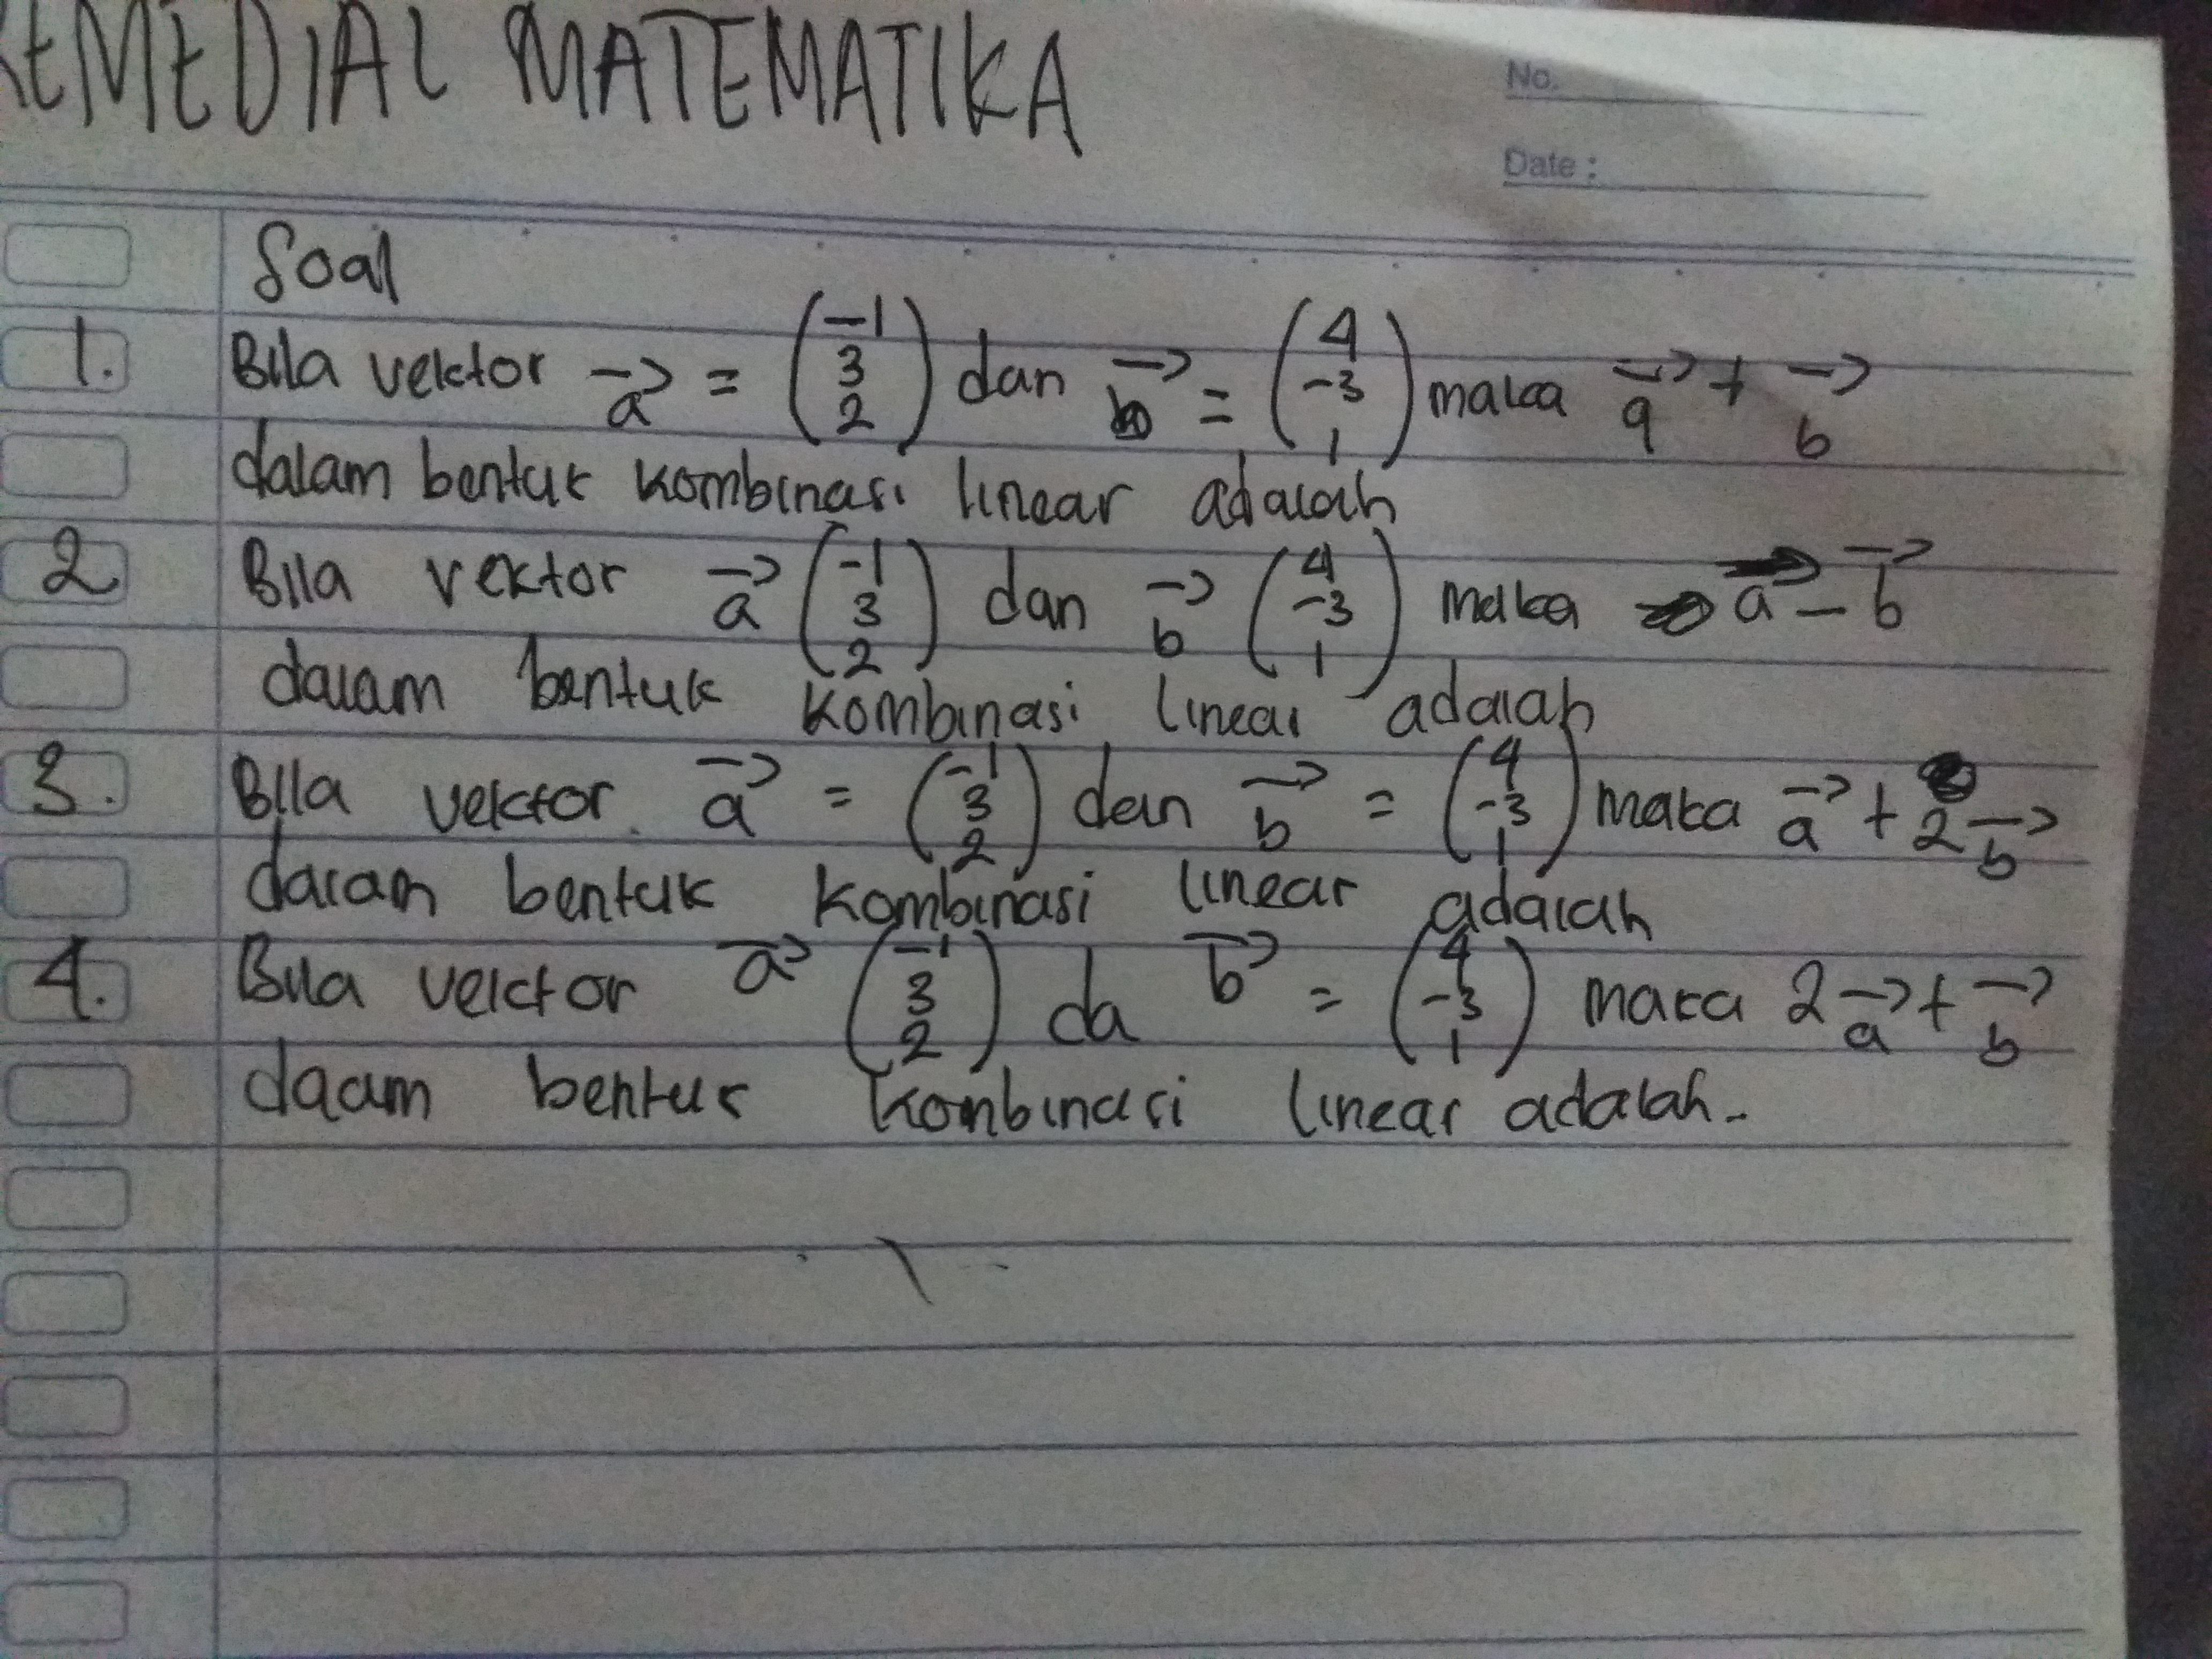 REMEDIAL MATEMATIKA
No.
Date :
Soal
1. Bila vektor a→ = (-1 3 2) dan b→ = (4 -3 1) maka a→ + b→
dalam bentuk kombinasi linear adalah
2 Bila vektor a→ (-1 3 2) dan b→ (4 -3 1) maka a→ - b→
dalam bentuk kombinasi linear adalah
3. Bila vektor a→ = (-1 3 2) dan b→ = (4 -3 1) maka a→ + 2b→
dalam bentuk kombinasi linear adalah
4. Bila vektor a→ (-1 3 2) da b→ = (4 -3 1) maka 2a→ + b→
daam bentuk kombinasi linear adalah.